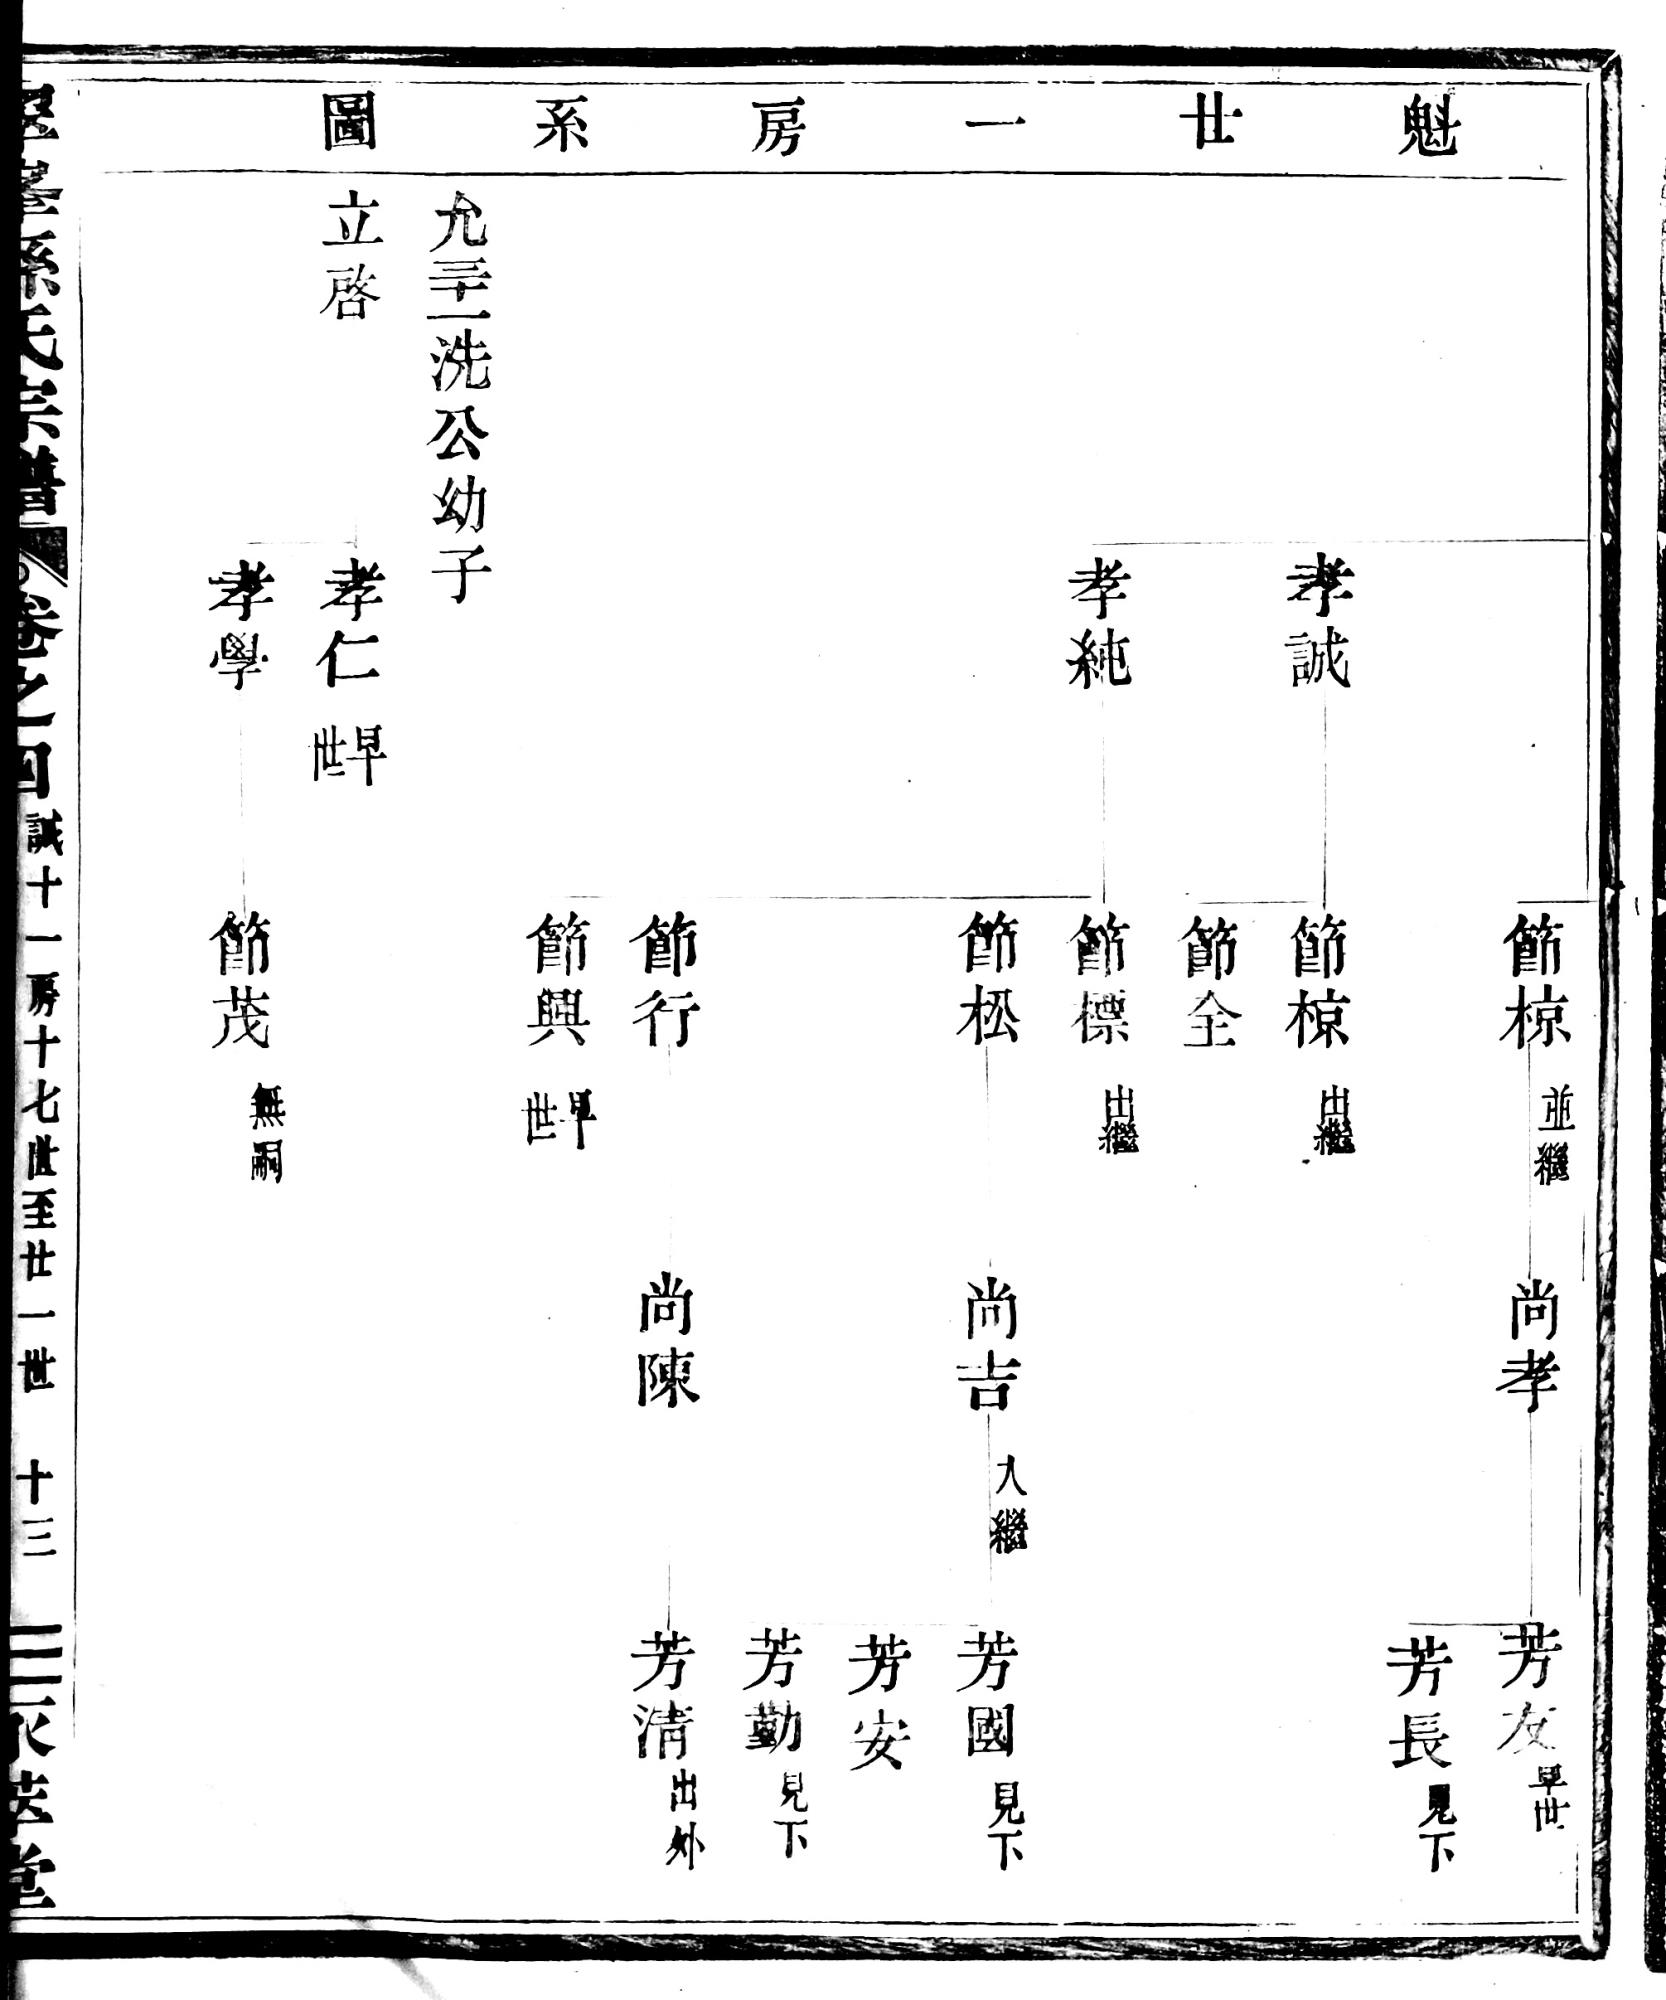 魁廿一房系圖
節椋 並繼
尚孝
芳友 早世
芳長 見下
孝誠
節椋 出繼
節全
孝純
節標 出繼
節松
尚吉 入繼
芳國 見下
芳安
芳勤 見下
節行
尚陳
芳清 出外
節興 早世
允三十一洗公幼子
立啓
孝仁 早世
孝學
節茂 無嗣
孫氏宗譜 卷之四 誠十一房十七世至廿一世 十三 萃堂